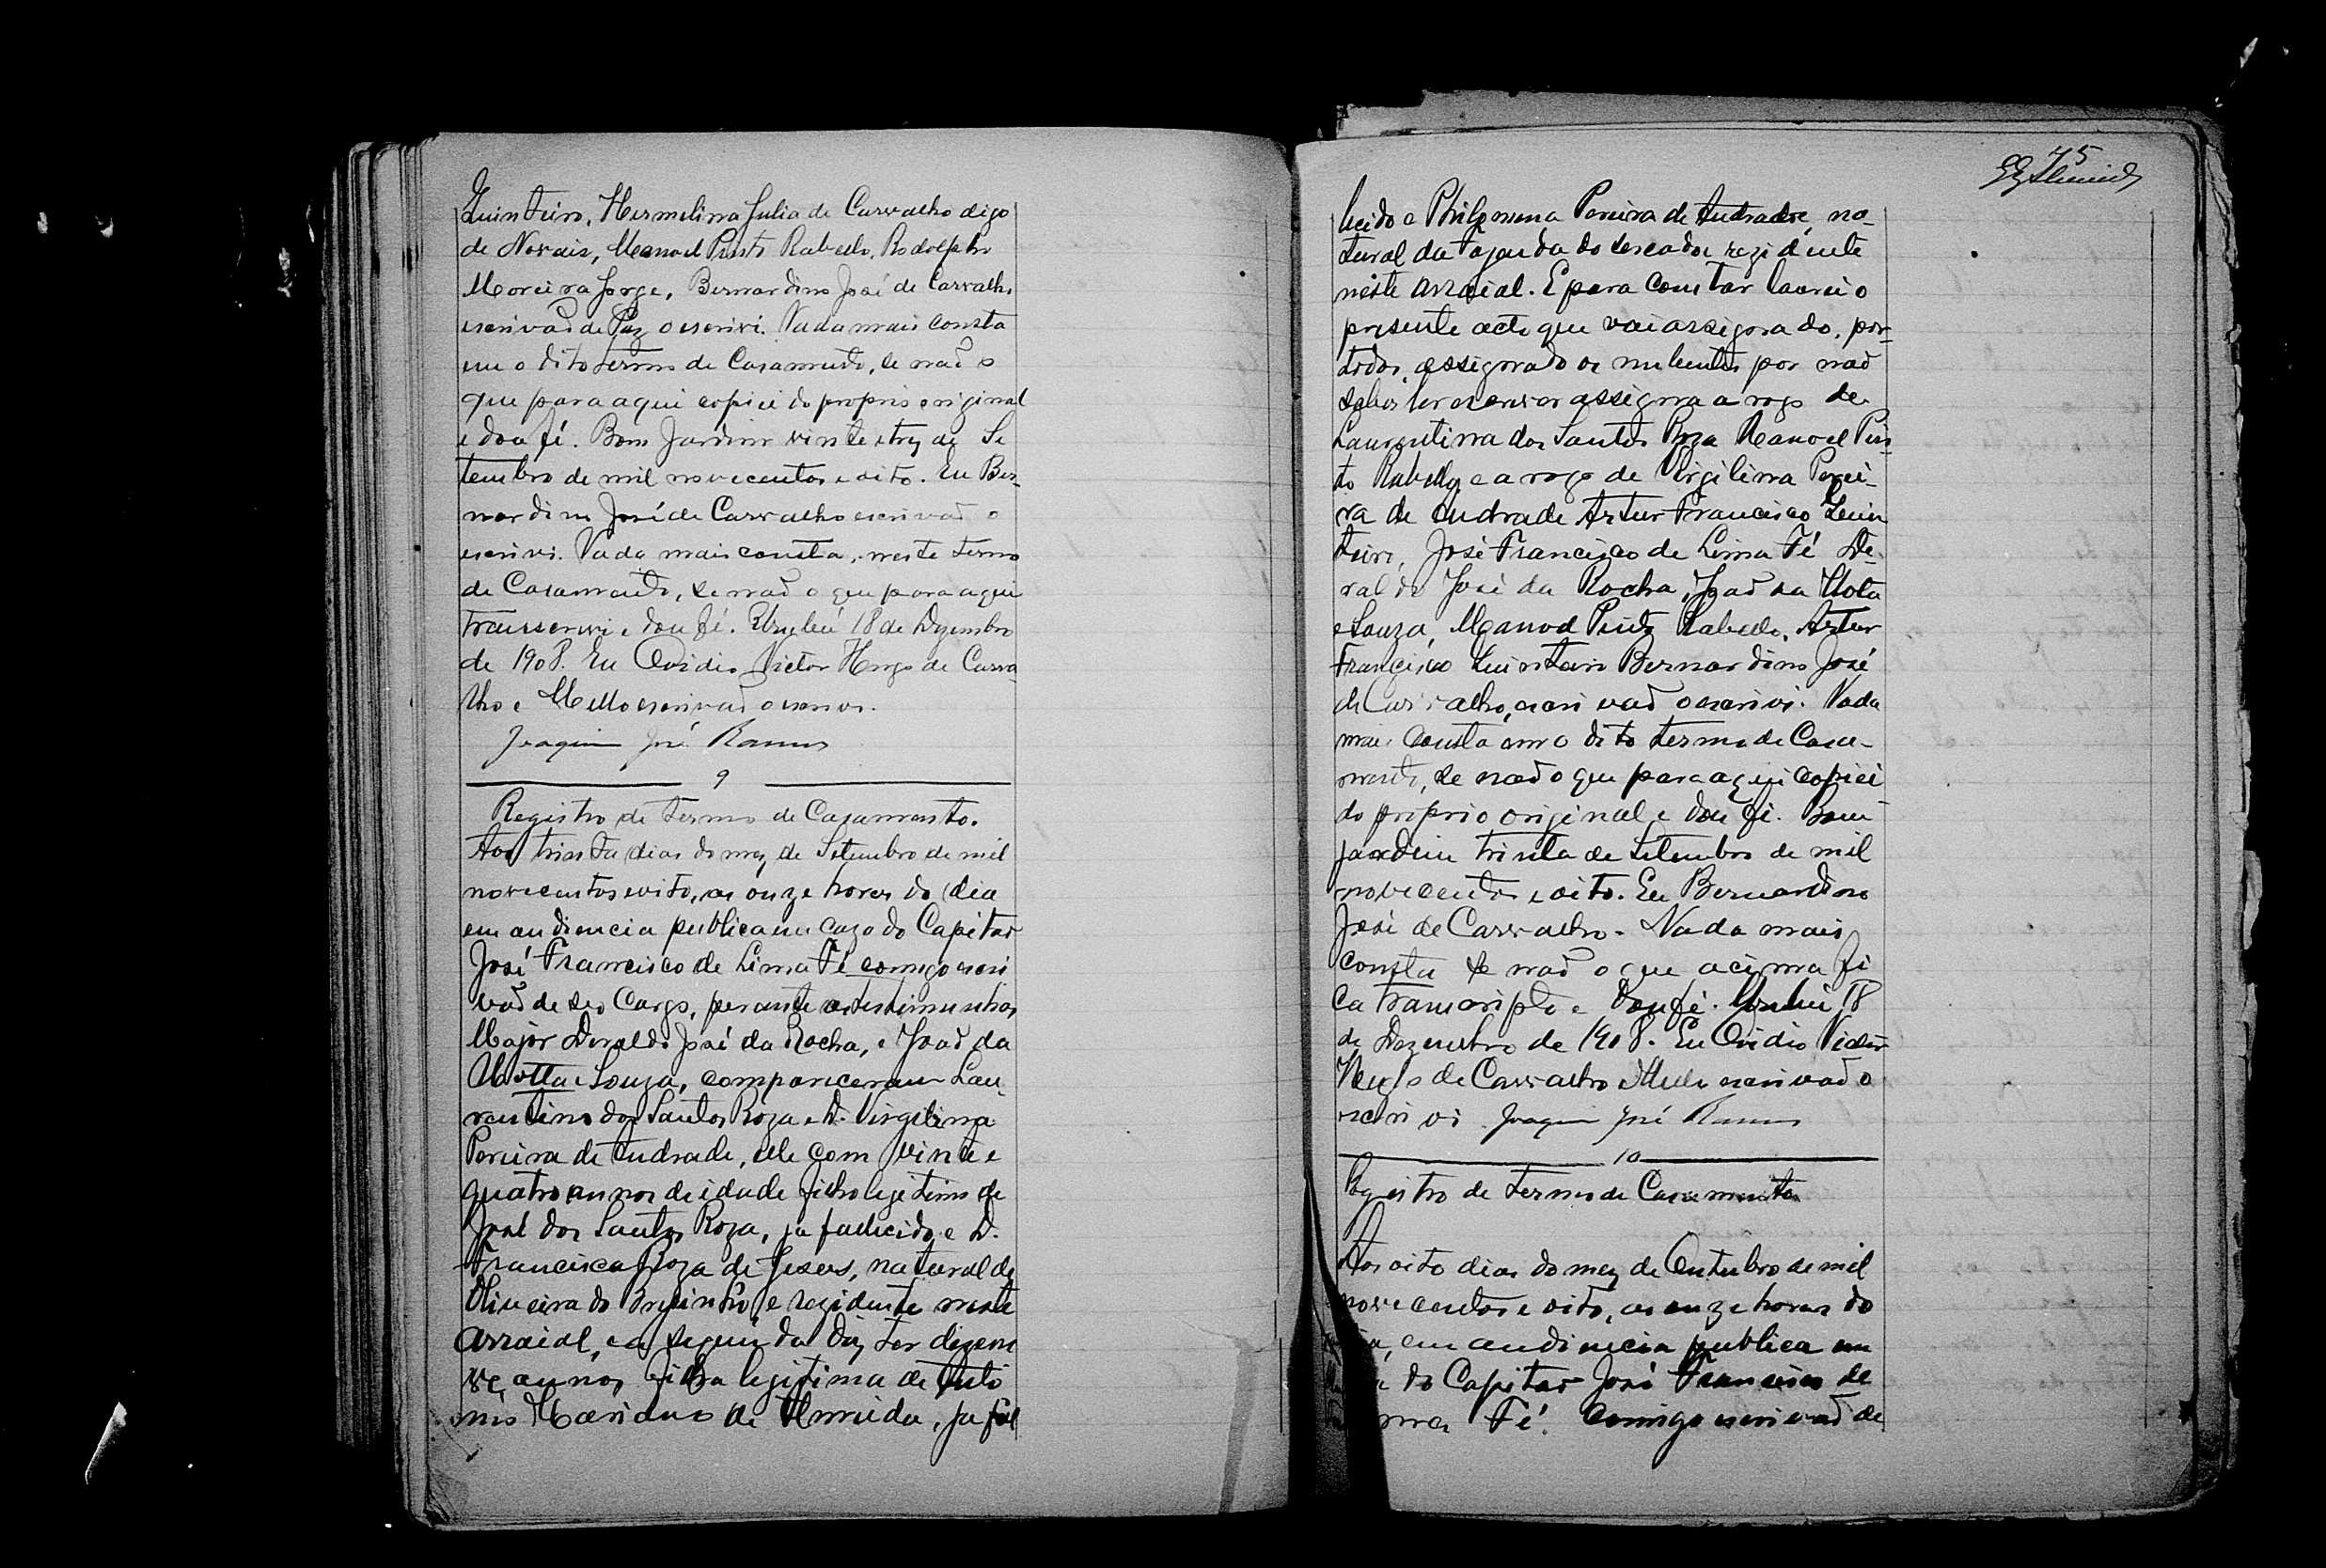 Quinteiro, Hermelina Julia de Carvalho digo
de Novais, Manoel Pinto Rabello, Rodolpho
Moreira Jorge, Bernardino José de Carvalho
escrivaõ de Paz o escrivi. Nada mais consta
em o dito termo de Casamento, se naõ o
que para aqui copiei do proprio original
e dou fé. Bom Jardim vinte e trez de Se
tembro de mil novecentos e oito. Eu Ber-
nardino José de Carvalho escrivaõ o
escrivi. Nada mais consta, neste termo
de Casamento, se naõ o que para aqui
transcrivi e dou fé. Urubú 18 de Dezembro
de 1908. Eu Ovidio Victor Hugo de Carva
lho e Mello escrivaõ o escrivi.
Joaquim José Ramos
9
Registro de Termo de Casamento.
Aos trinta dias do mez de Setembro de mil
novecentos e oito, as onze horas do dia
em audiencia publica em caza do Capitaõ
José Francisco de Lima Fé comigo escri
vaõ de seo Cargo, perante as testimunhas,
Major Deraldo José da Rocha, e Joaõ da
Motta e Souza, compareceram Lau-
rentino dos Santos Roza e D. Virgilina
Pereira de Andrade, elle com vinte e
quatro annos de idade filho legitimo de
José dos Santos Roza, ja fallecido e D.
Francisca Roza de Jesus, natural de
Oliveira do Brejinho e rezidente neste
arraial, e a segunda diz ter dezeno
ve annos, filha legitima de Anto
nio Mariano de Almeida, ja fal
75
lecido e Philomena Pereira de Andrade, na-
tural da fazenda do rezidente
neste arraial. E para constar lavrei o
presente acto que vai assignado, por
todos, assignado os nubentes por naõ
saber ler e escrever assigna a rogo de
Laurentino dos Santos Roza Manoel Pin
to Rabello, e a rogo de Virgilina Perei-
ra de Andrade Artur Francisco Quin
teiro, José Francisco de Lima Fé De-
raldo José da Rocha, Joaõ da Mota
e Souza, Manoel Pinto Rabello, Artur
Francisco Quinteiro Bernardino José
de Carvalho, escrivaõ o escrivi. Nada
mais Consta em o dito termo de Casa-
mento, se naõ o que para aqui copiei
do proprio original e dou fé. Bom
jardim trinta de Setembro de mil
novecentos e oito. Eu Bernardino
José de Carvalho. Nada mais
consta se naõ o que acima fi
ca transcripto e dou fé. Urubú 18
de Dezembro de 1908. Eu Ovidio Victor
Hugo de Carvalho e Mello escrivaõ o
escrivi Joaquim José Ramos
10
Registro de Termo de Casamento
Aos oito dias do mez de Outubro de mil
novecentos e oito, as onze horas do
dia, em audiencia publica em
do Capitaõ José Francisco de
Lima Fé. Comigo escrivaõ de